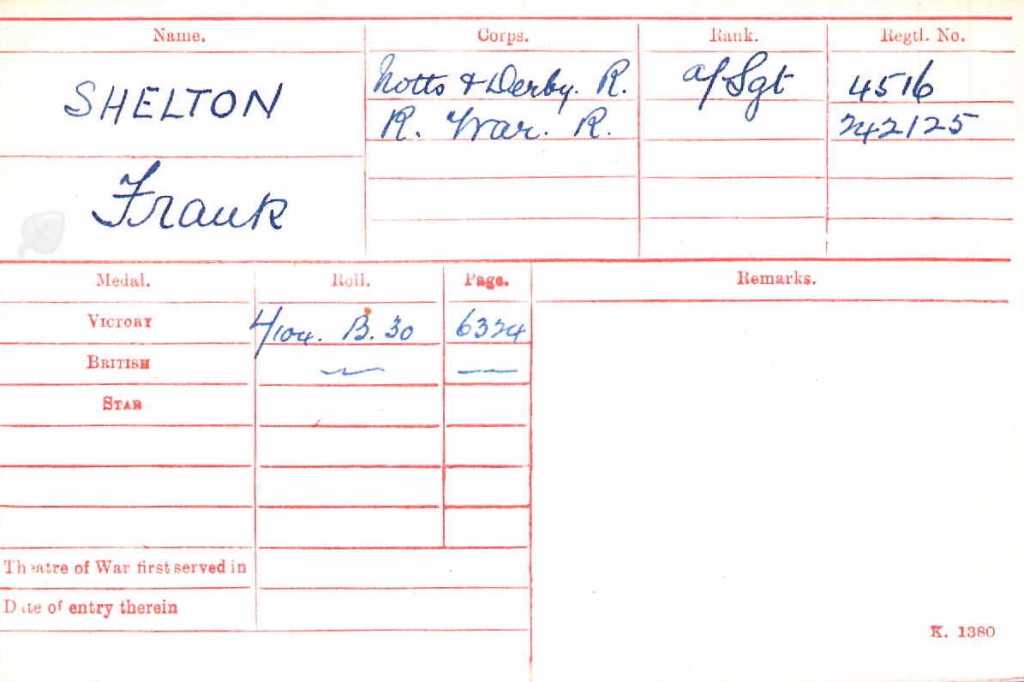 Name. Corps. Rank. Regtl. No.
SHELTON Notts & Derby. R. a/Sgt 4516
R. War. R. 242125
Frank
Medal. Roll. Page. Remarks.
VICTORY L/104. B. 30 6324
BRITISH
STAR
Theatre of War first served in
Date of entry therein
K. 1380